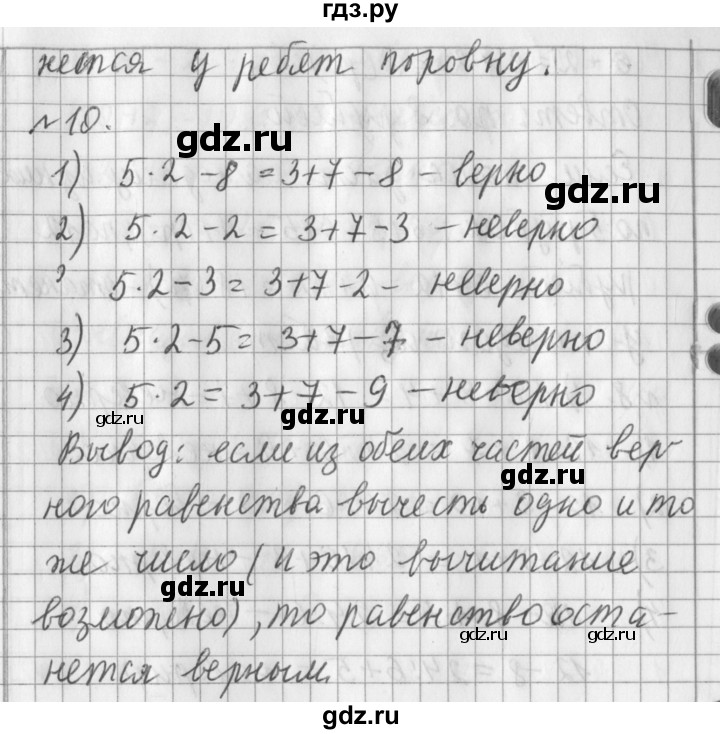 гдз.ру
нется у ребят поровну.
№10.
gdz.ru
1) 5·2-8=3+7-8 - верно
gdz.ru
2) 5·2-2=3+7-3 - неверно
5·2-3=3+7-2 - неверно
3) 5·2-5=3+7-7 - неверно
4) 5·2=3+7-9 - неверно
gdz.ru
gdz.ru
Вывод: если из обеих частей вер-
gdz.ru
ного равенства вычесть одно и то
же число (и это вычитание
gdz.ru
возможено), то равенство оста-
gdz.ru
gdz.ru
нется верным.
gdz.ru